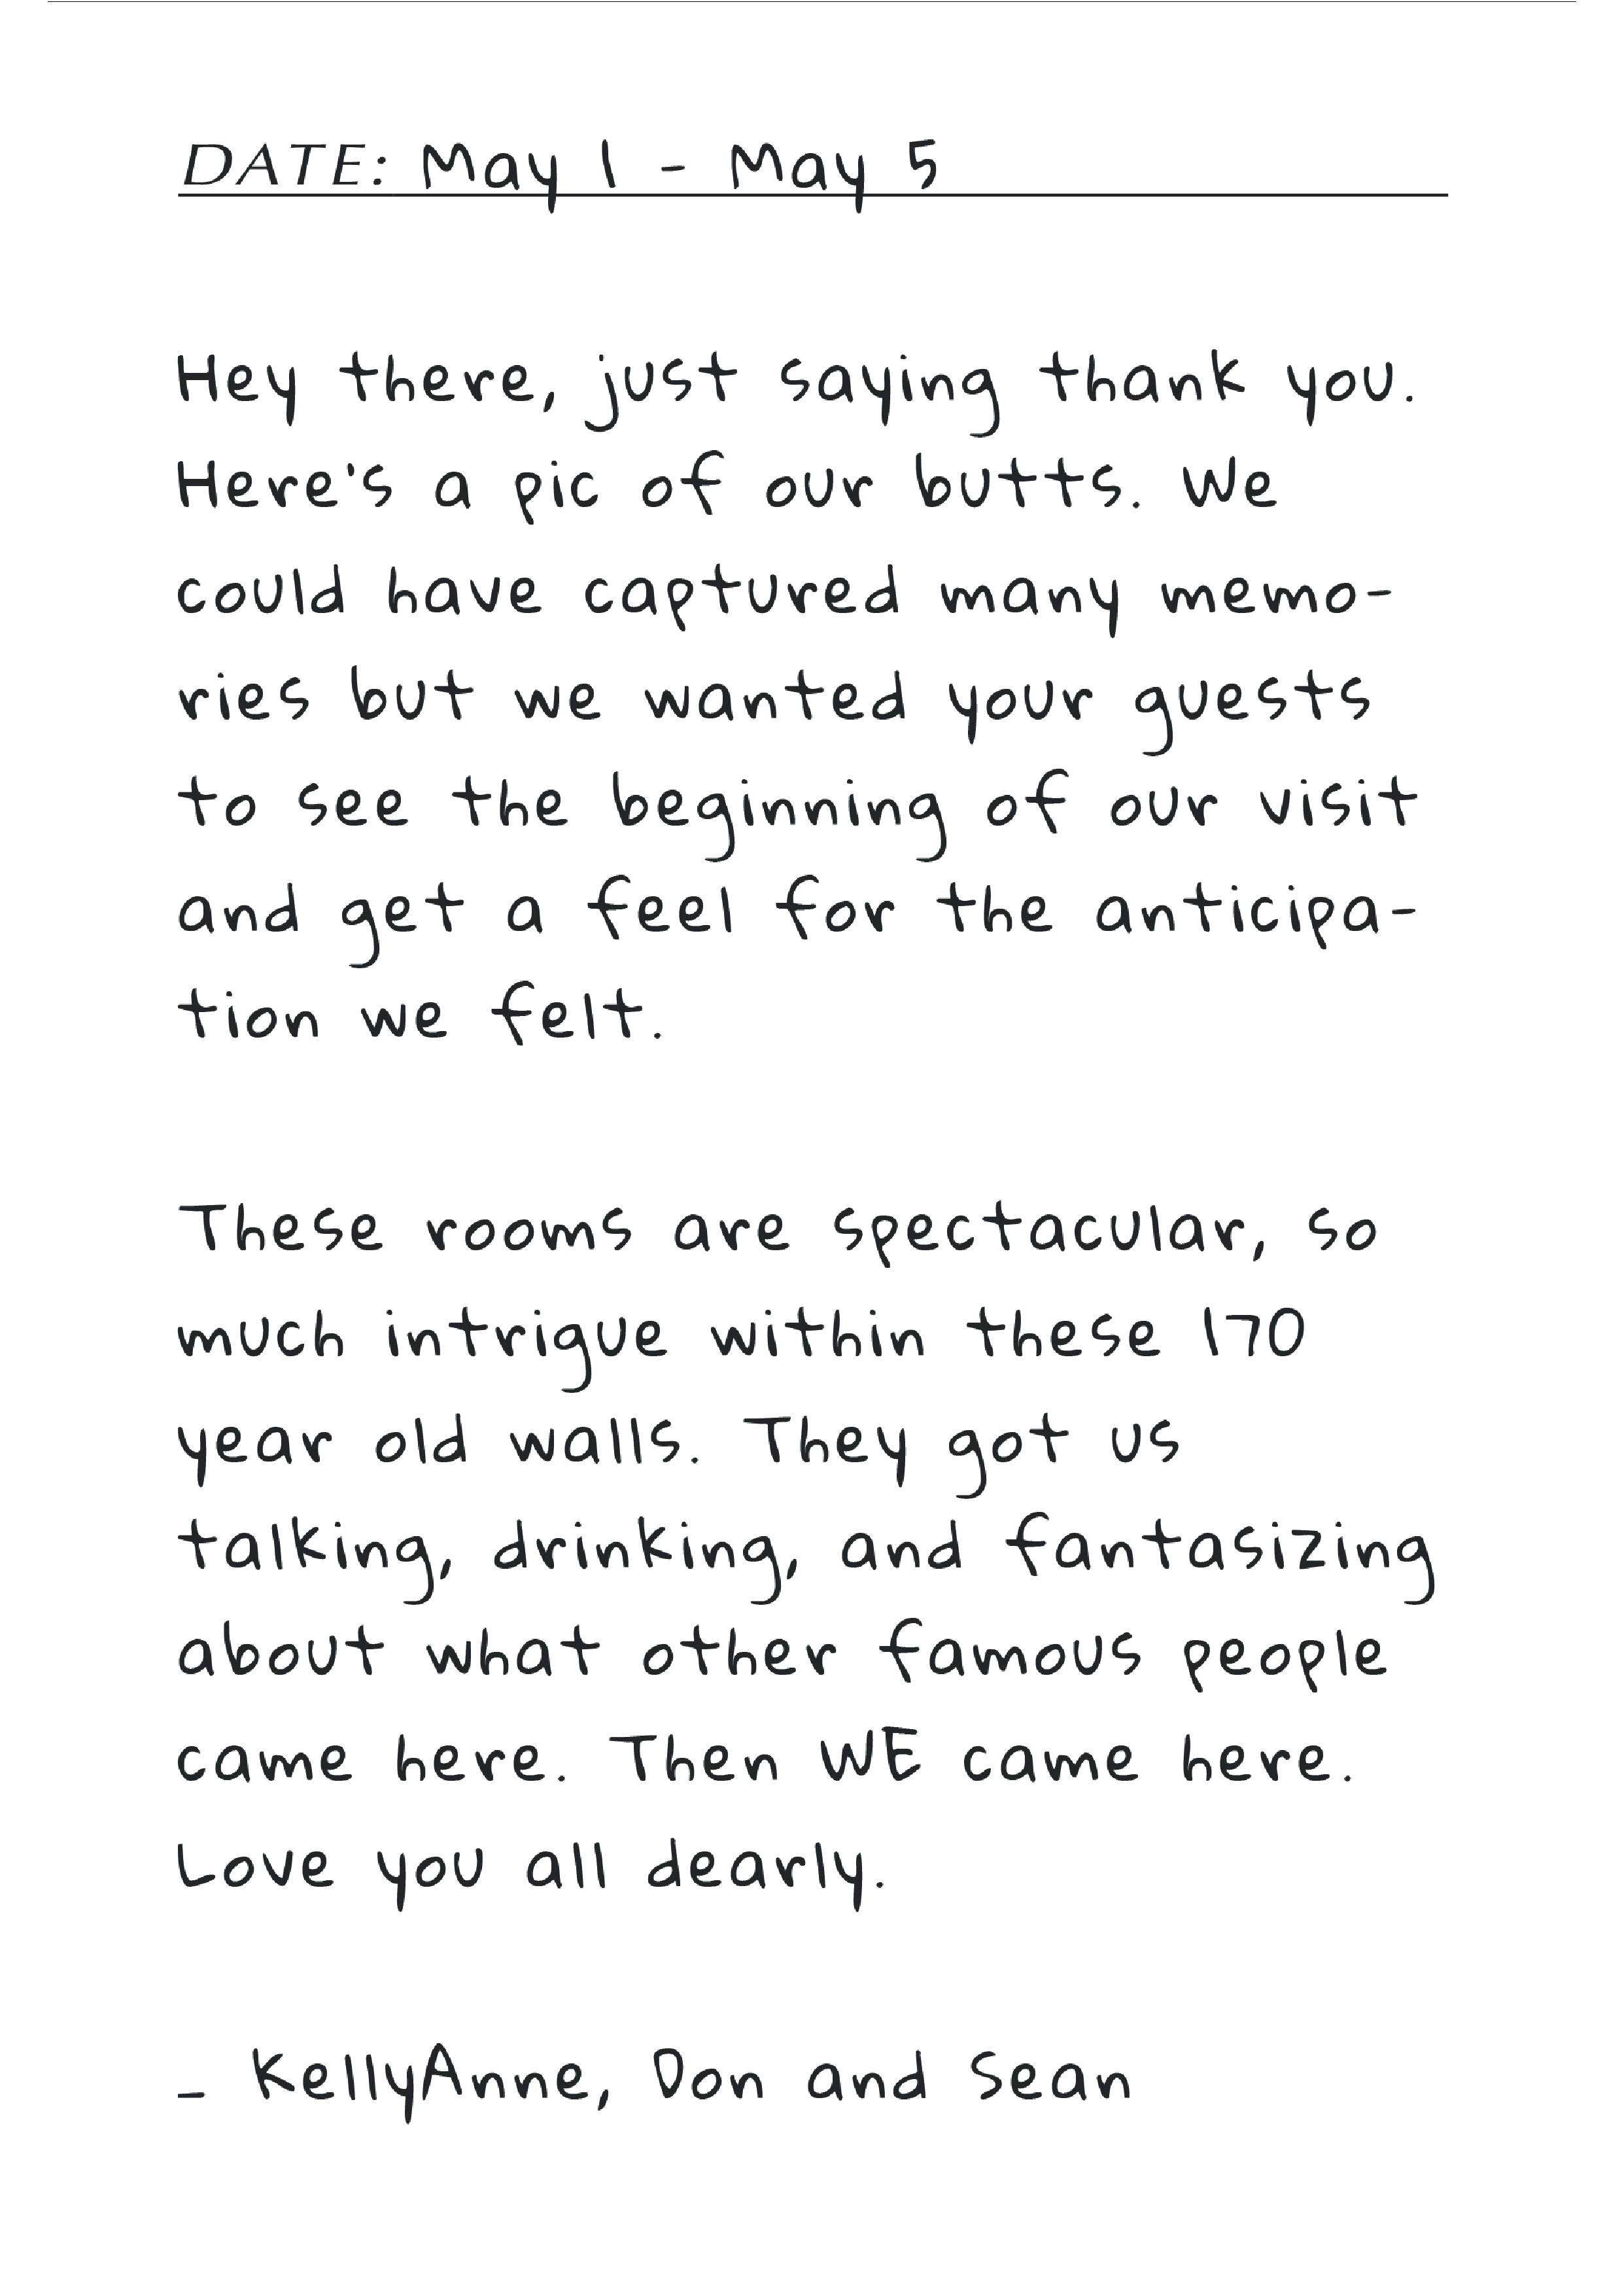 DATE: May 1 - May 5
Hey there, just saying thank you.
Here's a pic of our butts. We
could have captured many memo-
ries but we wanted your guests
to see the beginning of our visit
and get a feel for the anticipa-
tion we felt.
These rooms are spectacular, so
much intrigue within these 170
year old walls. They got us
talking, drinking, and fantasizing
about what other famous people
came here. Then WE came here.
Love you all dearly.
- KellyAnne, Don and Sean